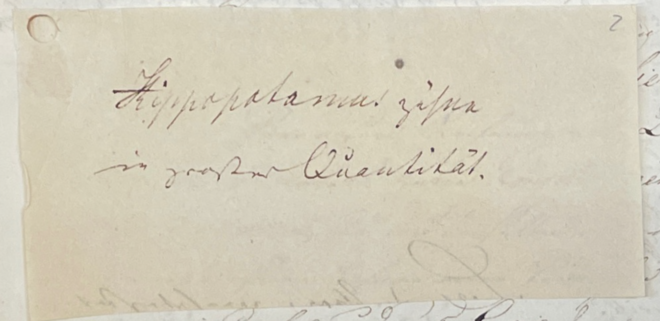 2
Hippopotamus zähne
in großer Quantität.